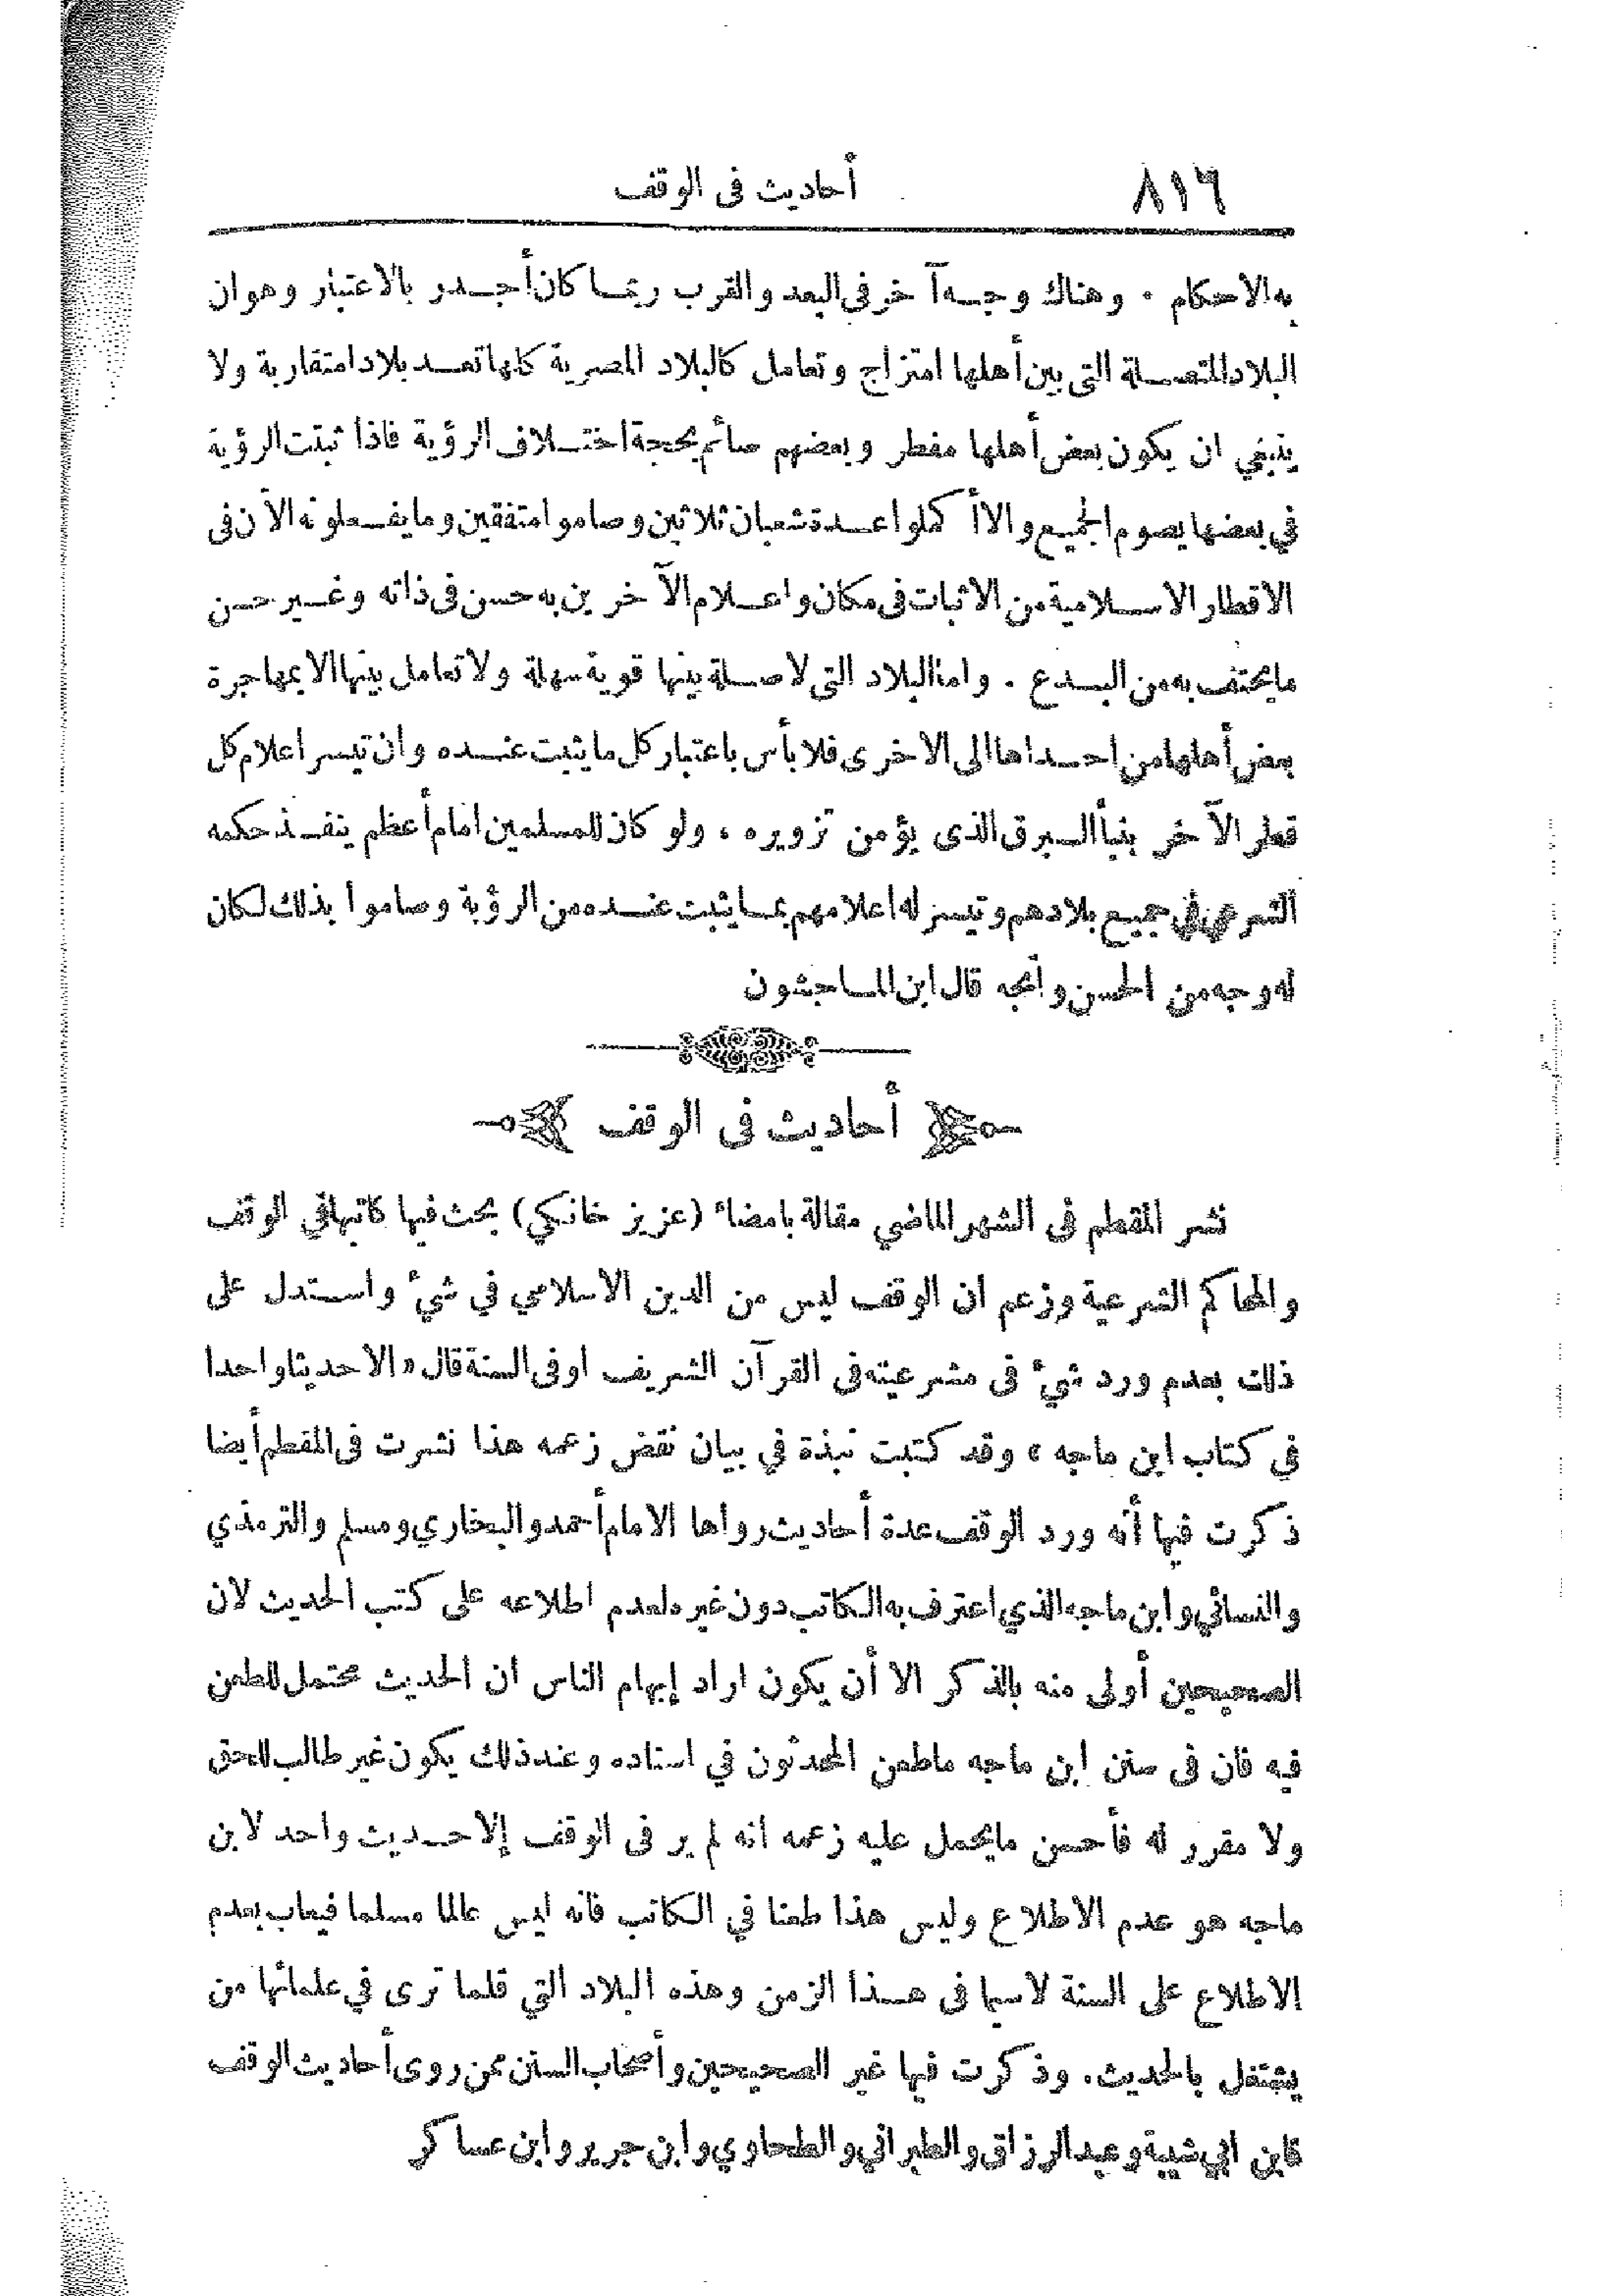 ٨١٦
أحاديث فى الوقف
به الاحكام . وهناك وجه آخر فى البعد والقرب ربما كان أجدر بالاعتبار وهو ان
البلاد المتصلة التى بين أهلها امتزاج وتعامل كالبلاد المصرية كلها تعد بلادا متقاربة ولا
ينبغي ان يكون بعض أهلها مفطر وبعضهم صائم بحجة اختلاف الرؤية فاذا ثبتت الرؤية
في بعضها يصوم الجميع والا أكملوا عدة شعبان ثلاثين وصاموا متفقين وما يفعلونه الآن فى
الاقطار الاسلامية من الاثبات فى مكان واعلام الآخرين به حسن فى ذاته وغير حسن
ما يحتف به من البدع . واما البلاد التى لا صلة بينها قوية سهلة ولا تعامل بينها الا بمهاجرة
بعض أهلها من احداها الى الاخرى فلا بأس باعتبار كل ما يثبت عنده وان تيسر اعلام كل
قطر الآخر بنبأ البرق الذى يؤمن تزويره ، ولو كان للمسلمين امام أعظم ينفذ حكمه
الشرعي في جميع بلادهم وتيسر له اعلامهم بما يثبت عنده من الرؤية وصاموا بذلك لكان
له وجه من الحسن واتجه قال ابن الماجشون
أحاديث فى الوقف
نشر المقطم فى الشهر الماضي مقالة بامضاء (عزيز خانكي) بحث فيها كاتبها في الوقف
والمحاكم الشرعية وزعم ان الوقف ليس من الدين الاسلامي في شيء واستدل على
ذلك بعدم ورد شيء فى مشرعيته فى القرآن الشريف او فى السنة قال « الا حديثا واحدا
في كتاب ابن ماجه » وقد كتبت نبذة في بيان نقض زعمه هذا نشرت فى المقطم أيضا
ذكرت فيها أنه ورد الوقف عدة أحاديث رواها الامام أحمد والبخاري ومسلم والترمذي
والنسائي وابن ماجه الذي اعترف به الكاتب دون غيره لعدم اطلاعه على كتب الحديث لان
الصحيحين أولى منه بالذكر الا أن يكون اراد إيهام الناس ان الحديث محتمل للطعن
فيه فان فى سنن ابن ماجه ما طعن المحدثون في اسناده وعند ذلك يكون غير طالب للحق
ولا مقرر له فأحسن ما يحمل عليه زعمه انه لم ير فى الوقف إلا حديث واحد لابن
ماجه هو عدم الاطلاع وليس هذا طعنا في الكاتب فانه ليس عالما مسلما فيعاب بعدم
الاطلاع على السنة لاسيما فى هذا الزمن وهذه البلاد التي قلما ترى في علمائها من
يشتغل بالحديث. وذكرت فيها غير الصحيحين وأصحاب السنن ممن روى أحاديث الوقف
كابن ابي شيبة وعبد الرزاق والطبراني والطحاوي وابن جرير وابن عساكر